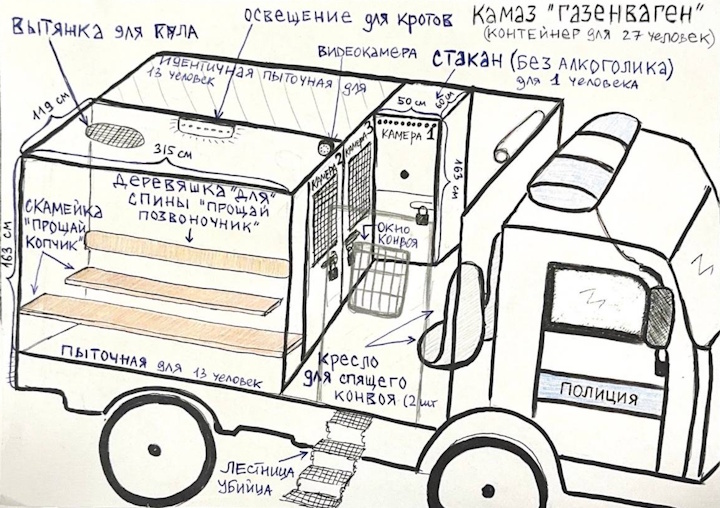 ВЫТЯЖКА для ВИДА
ОСВЕЩЕНИЕ для КРОТОВ
КАМАЗ "ГАЗЕНВАГЕН"
(КОНТЕЙНЕР для 27 ЧЕЛОВЕК)
ВИДЕОКАМЕРА
СТАКАН (БЕЗ АЛКОГОЛИКА)
для 1 ЧЕЛОВЕКА
ИДЕНТИЧНАЯ ПЫТОЧНАЯ для
13 ЧЕЛОВЕК
119 СМ
50 СМ
60 СМ
315 СМ
КАМЕРА 2
КАМЕРА 3
КАМЕРА 1
163 СМ
ДЕРЕВЯШКА "ДЛЯ"
СПИНЫ "ПРОЩАЙ
ПОЗВОНОЧНИК"
СКАМЕЙКА
"ПРОЩАЙ
КОПЧИК"
163 СМ
ОКНО
КОНВОЯ
ПЫТОЧНАЯ для 13 ЧЕЛОВЕК
КРЕСЛО
для СПЯЩЕГО
КОНВОЯ (2 шт
ПОЛИЦИЯ
ЛЕСТНИЦА
УБИЙЦА